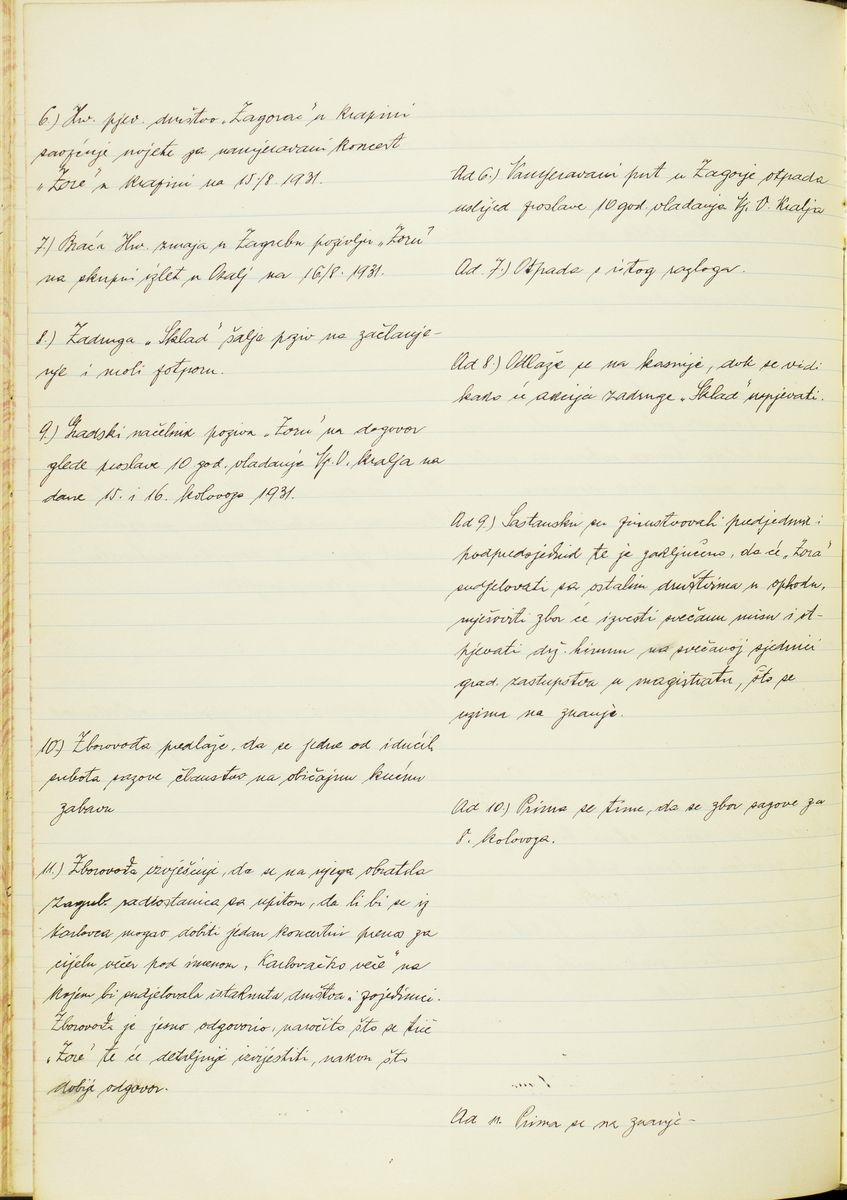 6.) Hrv. pjev. društvo „Zagorac" u Krapini
saopćuje uvjete za namjeravani koncert
„Zore" u Krapini na 15/8. 1931.
7.) Braća Hrv. zmaja u Zagrebu pozivlju „Zoru"
na skupni izlet u Ozalj na 16/8. 1931.
8.) Zadruga „Sklad" šalje poziv na začlanje-
nje i moli potporu.
9.) Gradski načelnik poziva „Zoru" na dogovor
glede proslave 10 god. vladanja Nj. V. Kralja na
dane 15. i 16. kolovoza 1931.
10.) Zborovođa predlaže, da se jedne od idućih
subota sazove članstvo na običajnu kućnu
zabavu
11.) Zborovođa izvješćuje, da se na njega obratila
zagreb. radiostanica sa upitom, da li bi se iz
Karlovca mogao dobiti jedan koncertni prenos za
cijelu večer pod imenom „Karlovačko veče" na
kojem bi sudjelovala istaknuta društva i pojedinci.
Zborovođa je jesno odgovorio, naročito što se tiče
„Zore" te će detaljnije izvijestiti, nakon što
dobije odgovor.
Ad 6.) Namjeravani put u Zagorje otpada
uslijed proslave 10 god. vladanja Nj. V. Kralja
Ad. 7.) Otpada s istog razloga.
Ad 8.) Odlaže se na kasnije, dok se vidi
kako će akcija zadruge „Sklad" uspjevati.
Ad 9.) Sastanku su prisustvovali predjednik i
podpredsjednik te je zaključeno, da će „Zora"
sudjelovati sa ostalim društvima u ophodu,
mješoviti zbor će izvesti svečanu misu i ot-
pjevati drž. himnu na svečanoj sjednici
grad. zastupstva u magistratu, što se
uzima na znanje.
Ad 10.) Prima se time, da se zbor sazove za
8. kolovoza.
Ad 11. Prima se na znanje-